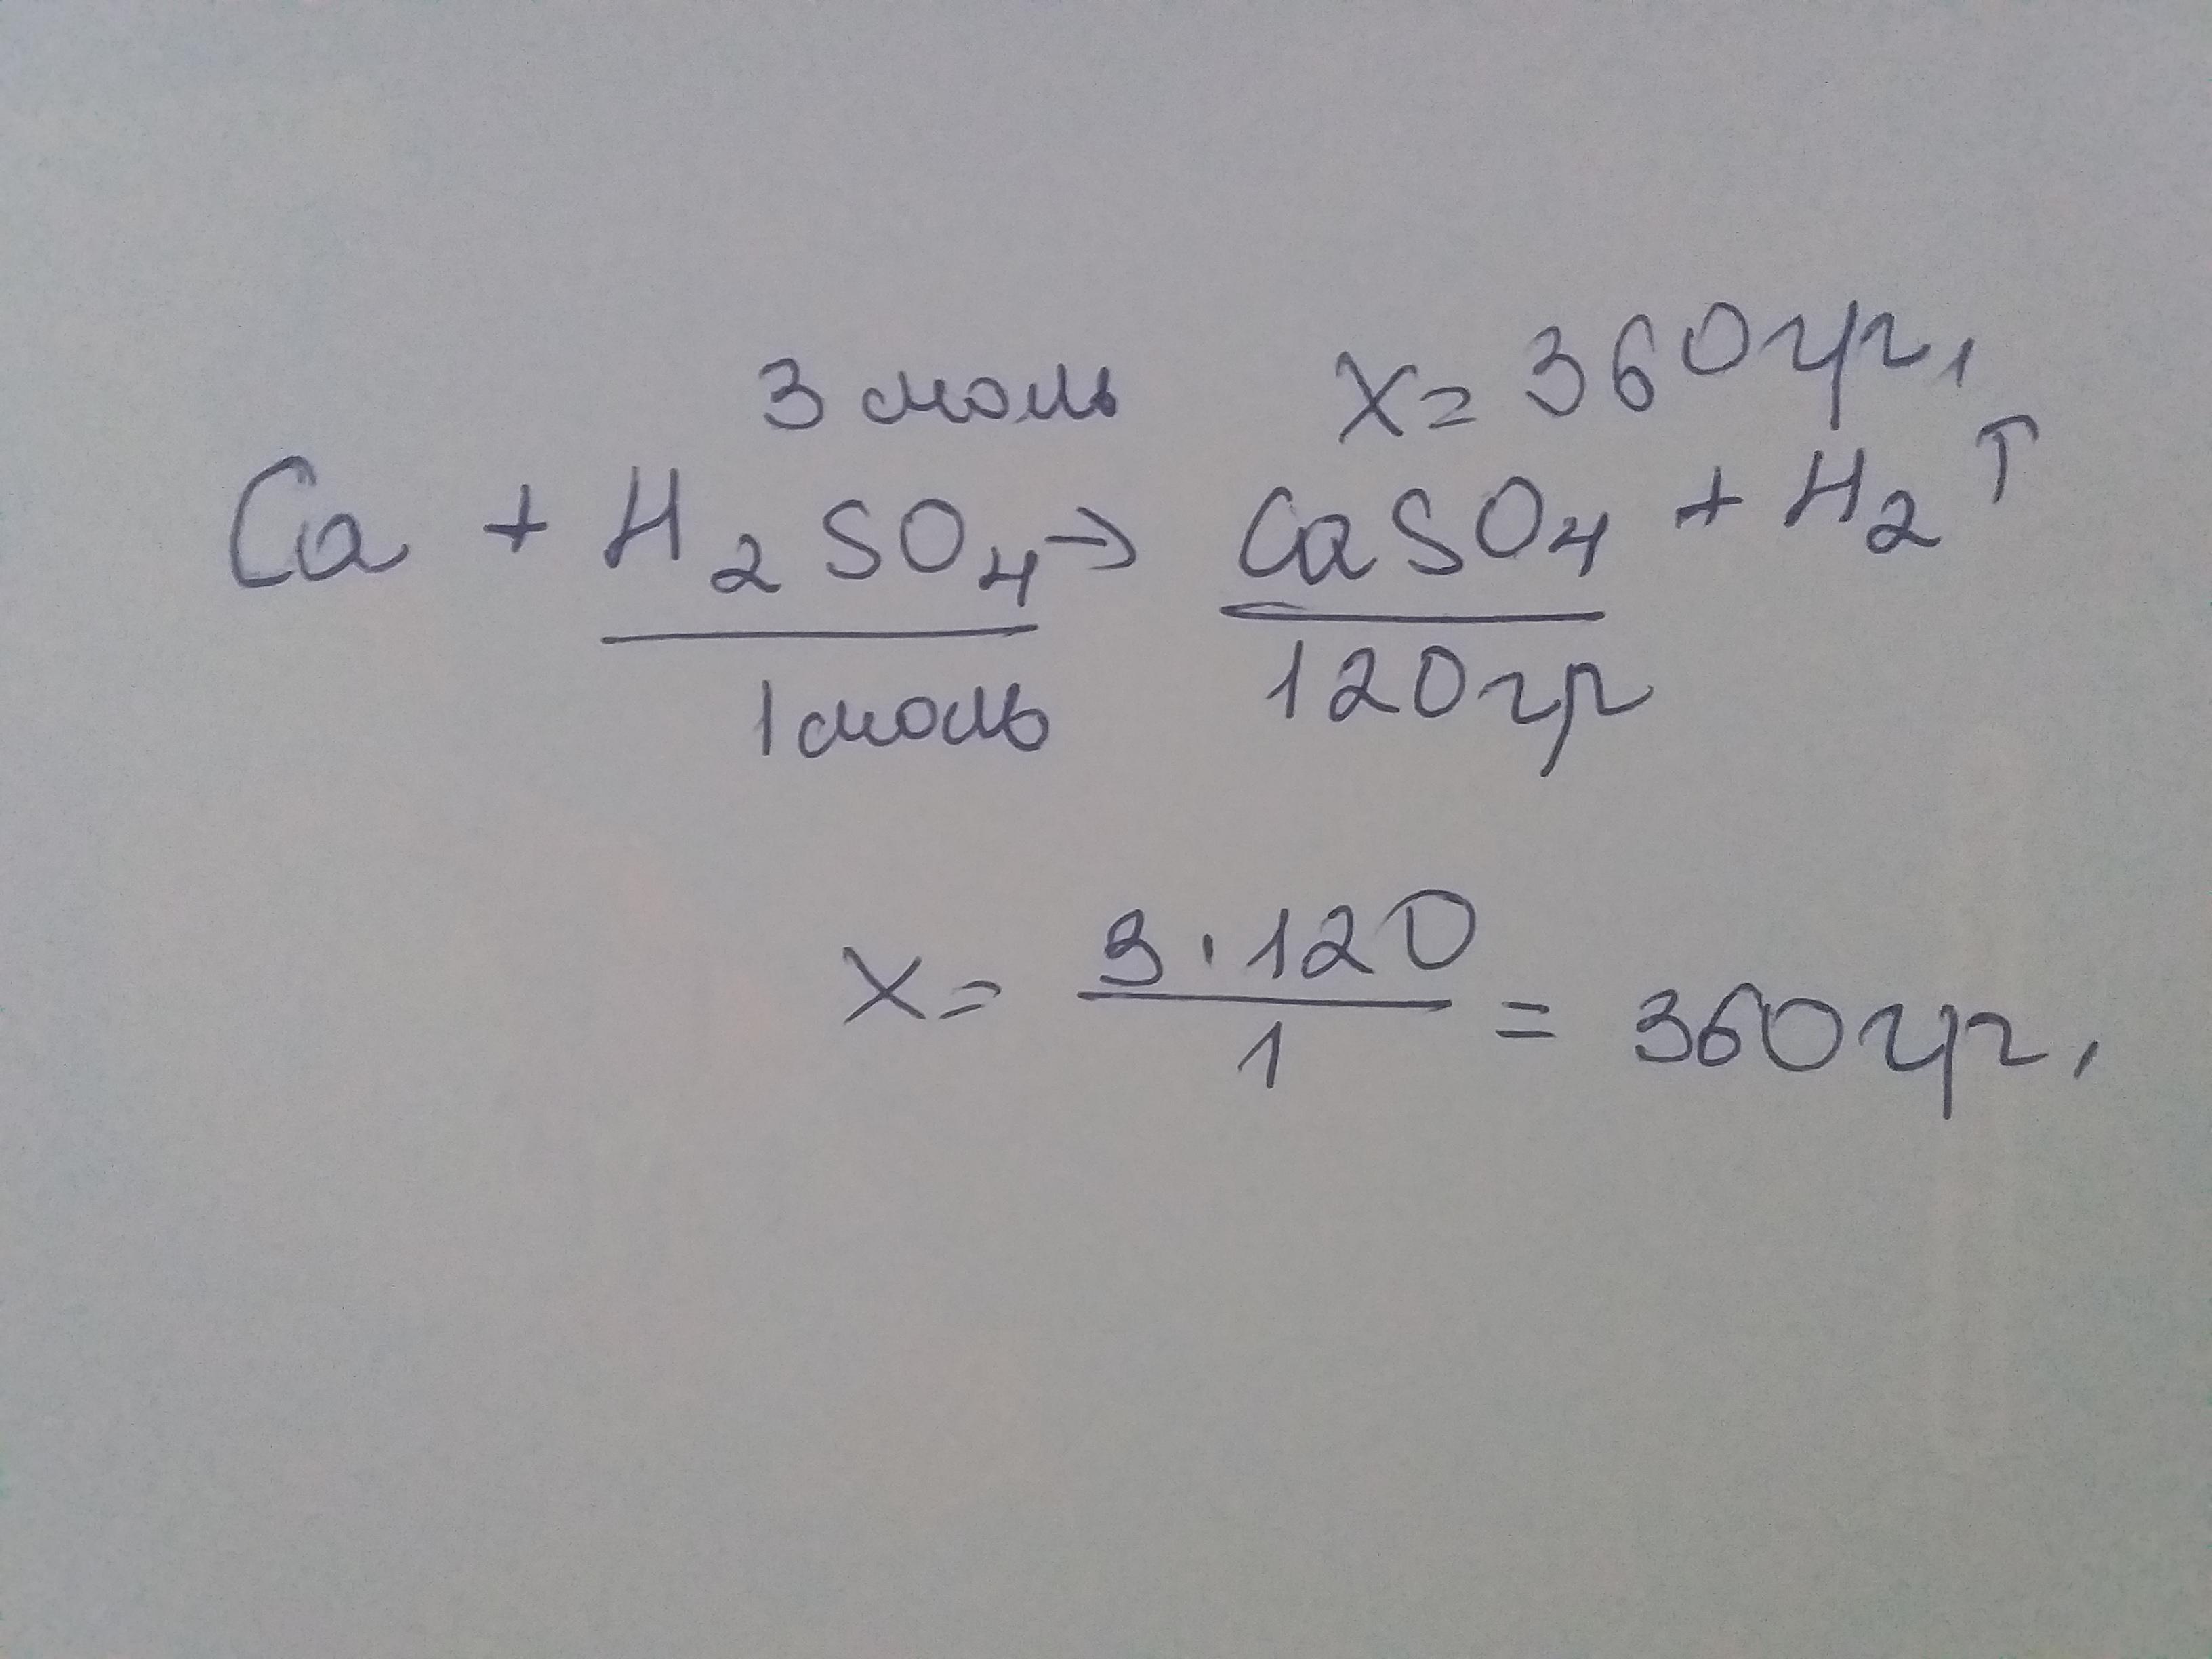 3 моль x = 360 гр.
Ca + H₂SO₄ → CaSO₄ + H₂↑
1 моль 120 гр
x = 3 · 120 / 1 = 360 гр.